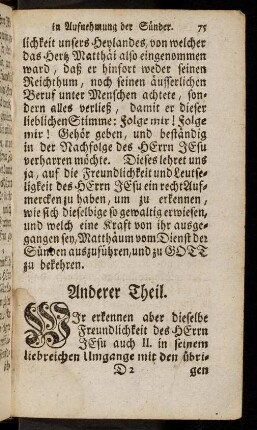 in Aufnehmung der Sünder. 75
lichkeit unsers Heylandes, von welcher
das Hertz Matthäi also eingenommen
ward, daß er hinfort weder seinen
Reichthum, noch seinen äusserlichen
Beruf unter Menschen achtete, son-
dern alles verließ, damit er dieser
lieblichen Stimme: Folge mir! Folge
mir! Gehör geben, und beständig
in der Nachfolge des HErrn JEsu
verharren möchte. Dieses lehret uns
ja, auf die Freundlichkeit und Leutse-
ligkeit des HErrn JEsu ein recht Auf-
mercken zu haben, um zu erkennen,
wie sich dieselbige so gewaltig erwiesen,
und welch eine Kraft von ihr ausge-
gangen sey, Matthäum vom Dienst der
Sünden auszuführen, und zu GOTT
zu bekehren.
Anderer Theil.
WIr erkennen aber dieselbe
Freundlichkeit des HErrn
JEsu auch II. in seinem
liebreichen Umgange mit den übri-
D 2 gen